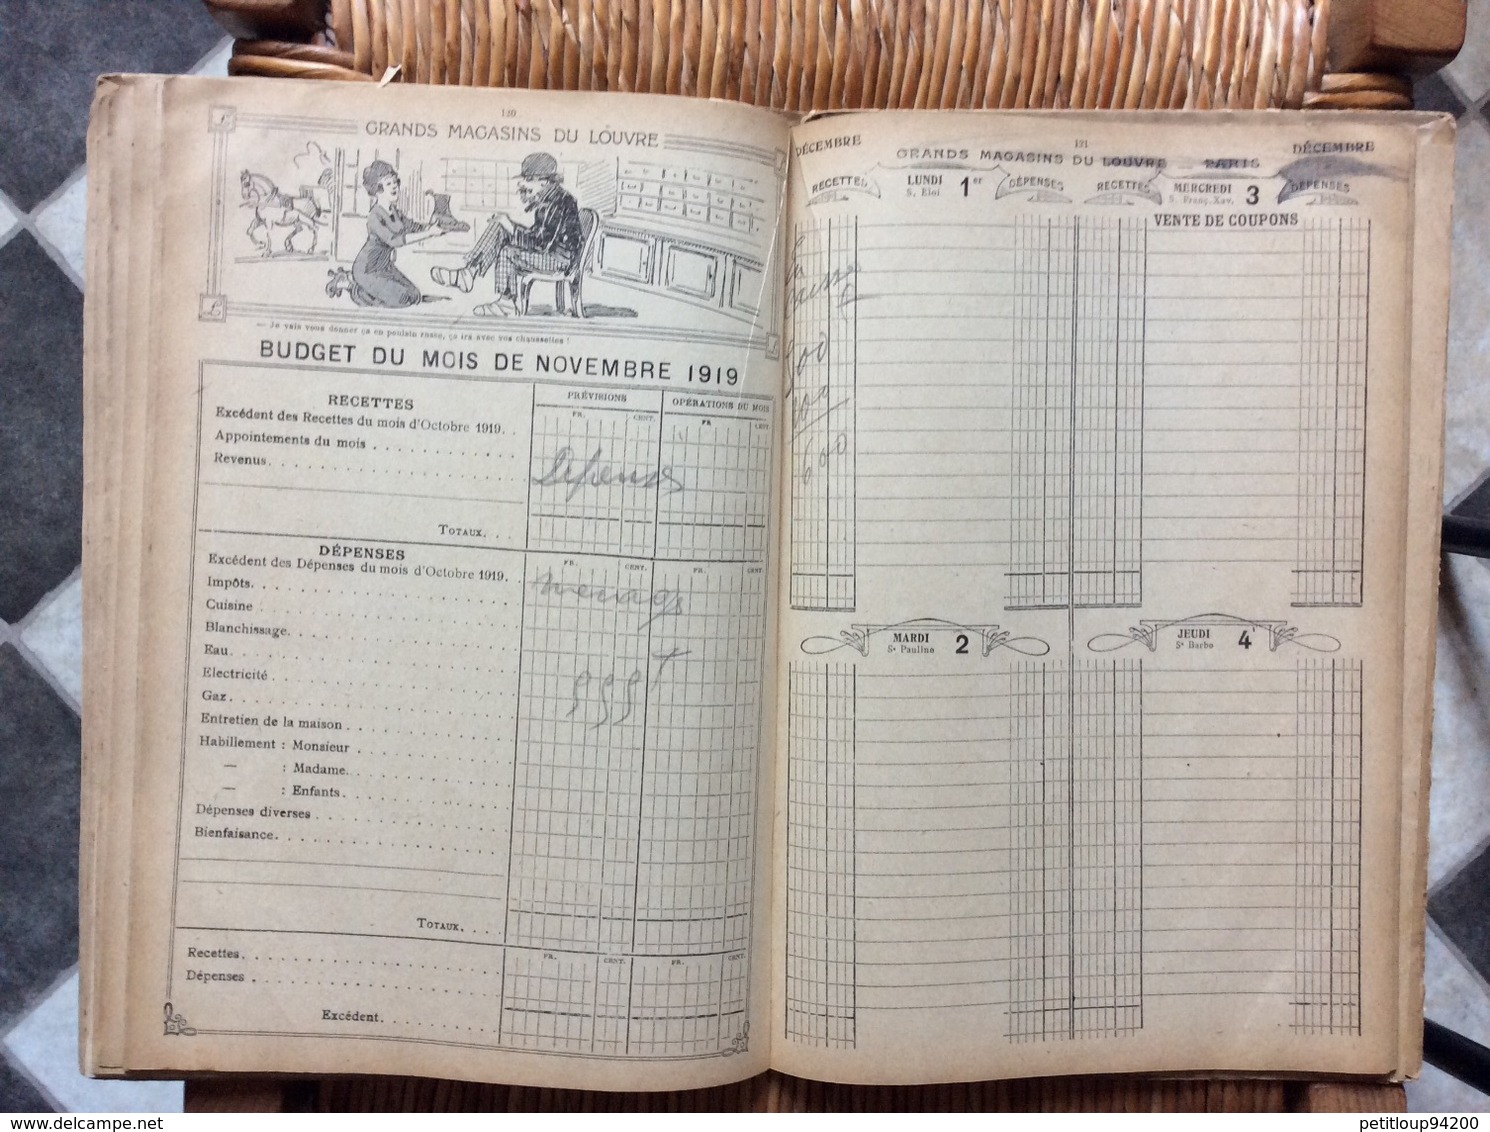 120
GRANDS MAGASINS DU LOUVRE
— Je vais vous donner ça en poulain russe, ça ira avec vos chaussettes !
BUDGET DU MOIS DE NOVEMBRE 1919
PRÉVISIONS
OPÉRATIONS DU MOIS
RECETTES
FR. CENT. FR CENT.
Excédent des Recettes du mois d'Octobre 1919. .
Appointements du mois
Revenus.
Dépenses
TOTAUX. . .
DÉPENSES
FR. CENT. FR. CENT.
Excédent des Dépenses du mois d'Octobre 1919. .
Impôts.
menage
Cuisine
Blanchissage.
Eau.
Electricité
999
Gaz.
Entretien de la maison
Habillement : Monsieur
— : Madame.
— : Enfants.
Dépenses diverses
Bienfaisance.
TOTAUX.
FR. CENT. FR. CENT.
Recettes.
Dépenses
Excédent.
DÉCEMBRE
121
GRANDS MAGASINS DU LOUVRE — PARIS
DÉCEMBRE
RECETTES
LUNDI
S. Eloi
1er
DÉPENSES
RECETTES
MERCREDI
S. Franç. Xav.
3
DÉPENSES
VENTE DE COUPONS
500
100
600
MARDI
Se Pauline
2
JEUDI
Se Barbe
4
delcampe.net
petitloup94200